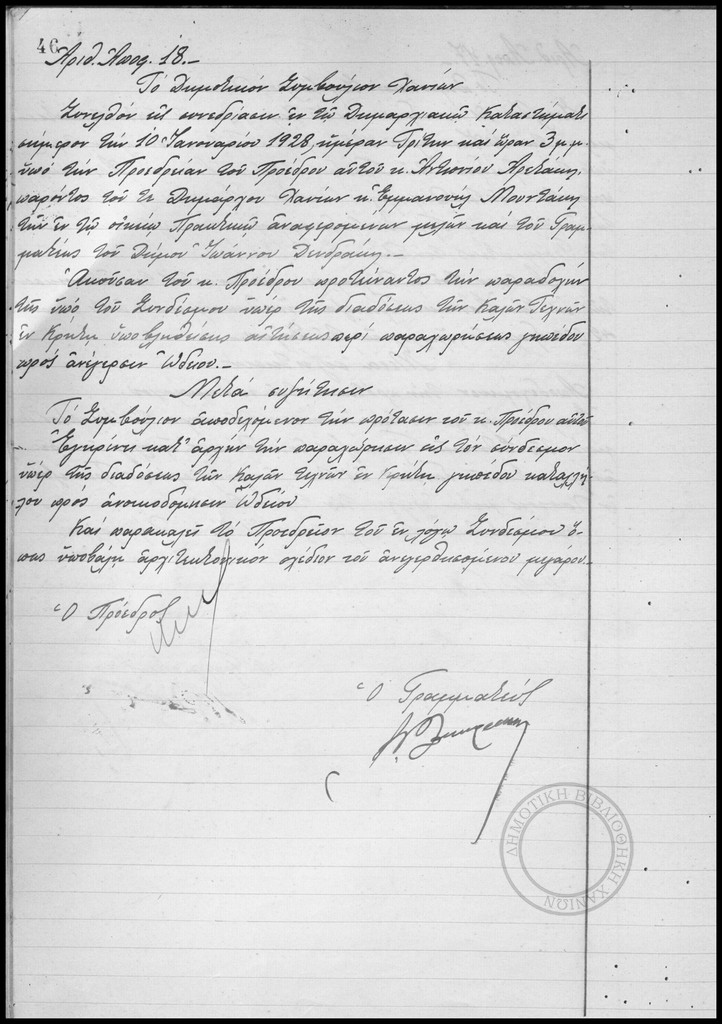 46
Ἀριθ. Ἀποφ. 18.-
Τὸ Δημοτικὸν Συμβούλιον Χανίων
Συνελθὸν εἰς συνεδρίασιν ἐν τῷ Δημαρχιακῷ Καταστήματι
σήμερον τὴν 10 Ἰανουαρίου 1928, ἡμέραν Τρίτην καὶ ὥραν 3 μ.μ.
ὑπὸ τὴν Προεδρείαν τοῦ Προέδρου αὐτοῦ κ. Ἀντωνίου
παρόντος τοῦ κ. Δημάρχου Χανίων κ. Ἐμμανουὴλ Μουντάκη
τῶν ἐν τῷ οἰκείῳ Πρακτικῷ ἀναφερομένων μελῶν καὶ τοῦ Γραμ-
ματέως τοῦ Δήμου Ἰωάννου Δενδράκη.-
Ἀκοῦσαν τοῦ κ. Προέδρου προτείναντος τὴν παραδοχὴν
τῆς ὑπὸ τοῦ Συνδέσμου ὑπὲρ τῆς διαδόσεως τῶν Καλῶν Τεχνῶν
ἐν Κρήτῃ ὑποβληθείσης αἰτήσεως περὶ παραχωρήσεως γηπέδου
πρὸς ἀνέγερσιν Ὠδείου.-
Μετὰ συζήτησιν
Τὸ Συμβούλιον ἀποδεχόμενον τὴν πρότασιν τοῦ κ. Προέδρου αὐτοῦ
Ἐγκρίνει κατ' ἀρχὴν τὴν παραχώρησιν εἰς τὸν σύνδεσμον
ὑπὲρ τῆς διαδόσεως τῶν Καλῶν τεχνῶν ἐν Κρήτῃ γηπέδου καταλλή-
λου πρὸς ἀνοικοδόμησιν Ὠδείου
Καὶ παρακαλεῖ τὸ Προεδρεῖον τοῦ ἐν λόγῳ Συνδέσμου ὅ-
πως ὑποβάλῃ ἀρχιτεκτονικὸν σχέδιον τοῦ ἀνεγερθησομένου μεγάρου.-
Ὁ Πρόεδρος
Ὁ Γραμματεὺς
ΔΗΜΟΤΙΚΗ ΒΙΒΛΙΟΘΗΚΗ ΧΑΝΙΩΝ